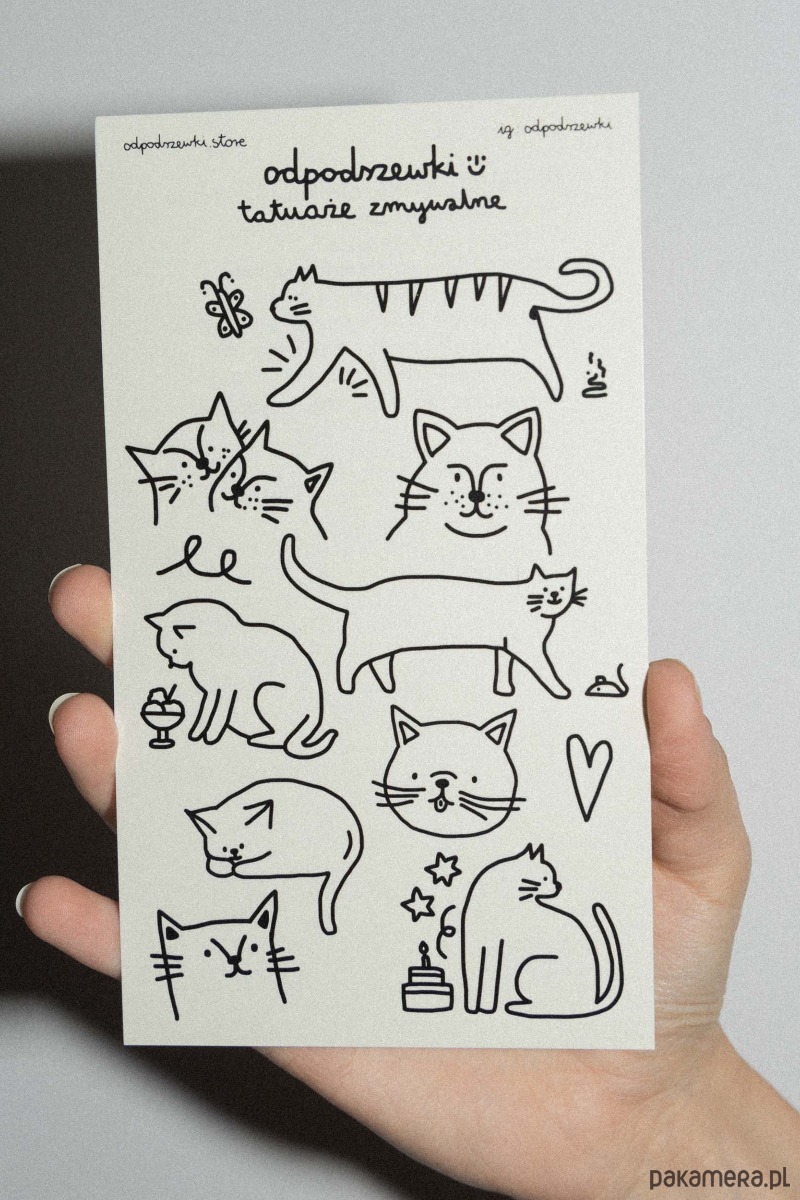 odpodszewki.store
ig: odpodszewki
odpodszewki
tatuaże zmywalne
pakamera.pl